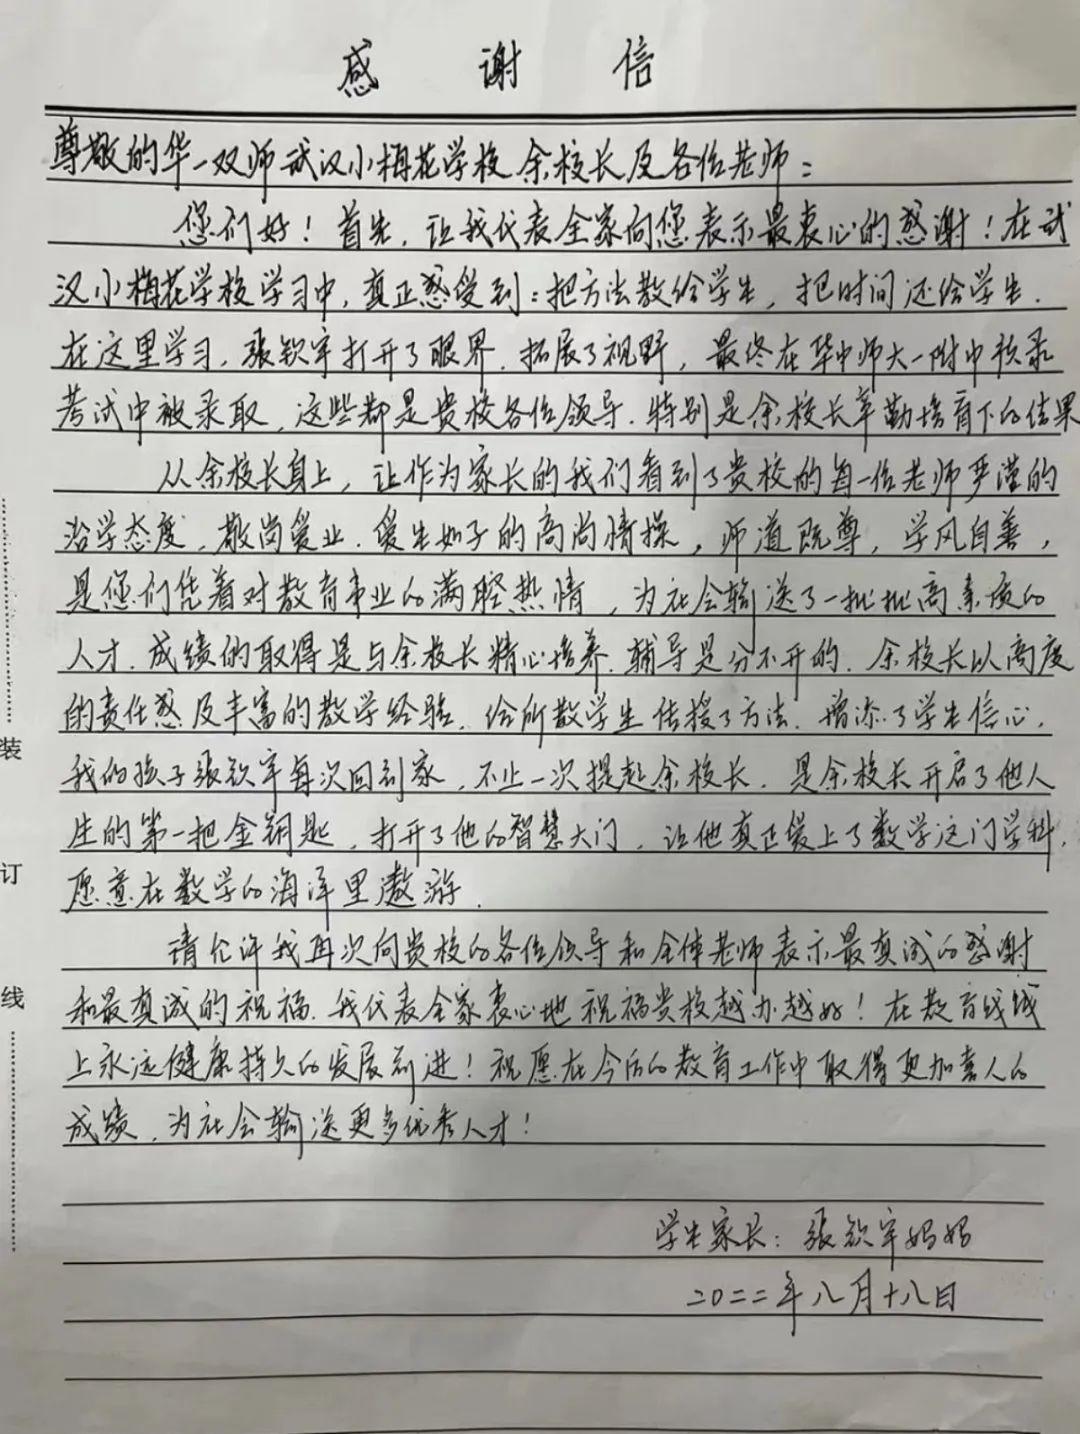 感谢信
尊敬的华一双师武汉小梅花学校余校长及各位老师：
您们好！首先，让我代表全家向您表示最衷心的感谢！在武
汉小梅花学校学习中，真正感受到：把方法教给学生，把时间还给学生.
在这里学习，张钦宇打开了眼界.拓展了视野，最终在华中师大一附中预录
考试中被录取，这些都是贵校各位领导.特别是余校长辛勤培育下的结果
从余校长身上，让作为家长的我们看到了贵校的每一位老师严谨的
治学态度，敬岗爱业.爱生如子的高尚情操，师道既尊，学风自善，
是您们凭着对教育事业的满腔热情，为社会输送了一批批高素质的
人才.成绩的取得是与余校长精心培养.辅导是分不开的.余校长以高度
的责任感及丰富的教学经验.给所教学生传授了方法.增添了学生信心.
我的孩子张钦宇每次回到家，不止一次提起余校长.是余校长开启了他人
生的第一把金钥匙，打开了他的智慧大门，让他真正爱上了数学这门学科，
愿意在数学的海洋里遨游.
请允许我再次向贵校的各位领导和全体老师表示最真诚的感谢
和最真诚的祝福.我代表全家衷心地祝福贵校越办越好！在教育线域
上永远健康持久的发展前进！祝愿在今后的教育工作中取得更加喜人的
成绩，为社会输送更多优秀人才！
学生家长：张钦宇妈妈
二〇二二年八月十八日
装
订
线